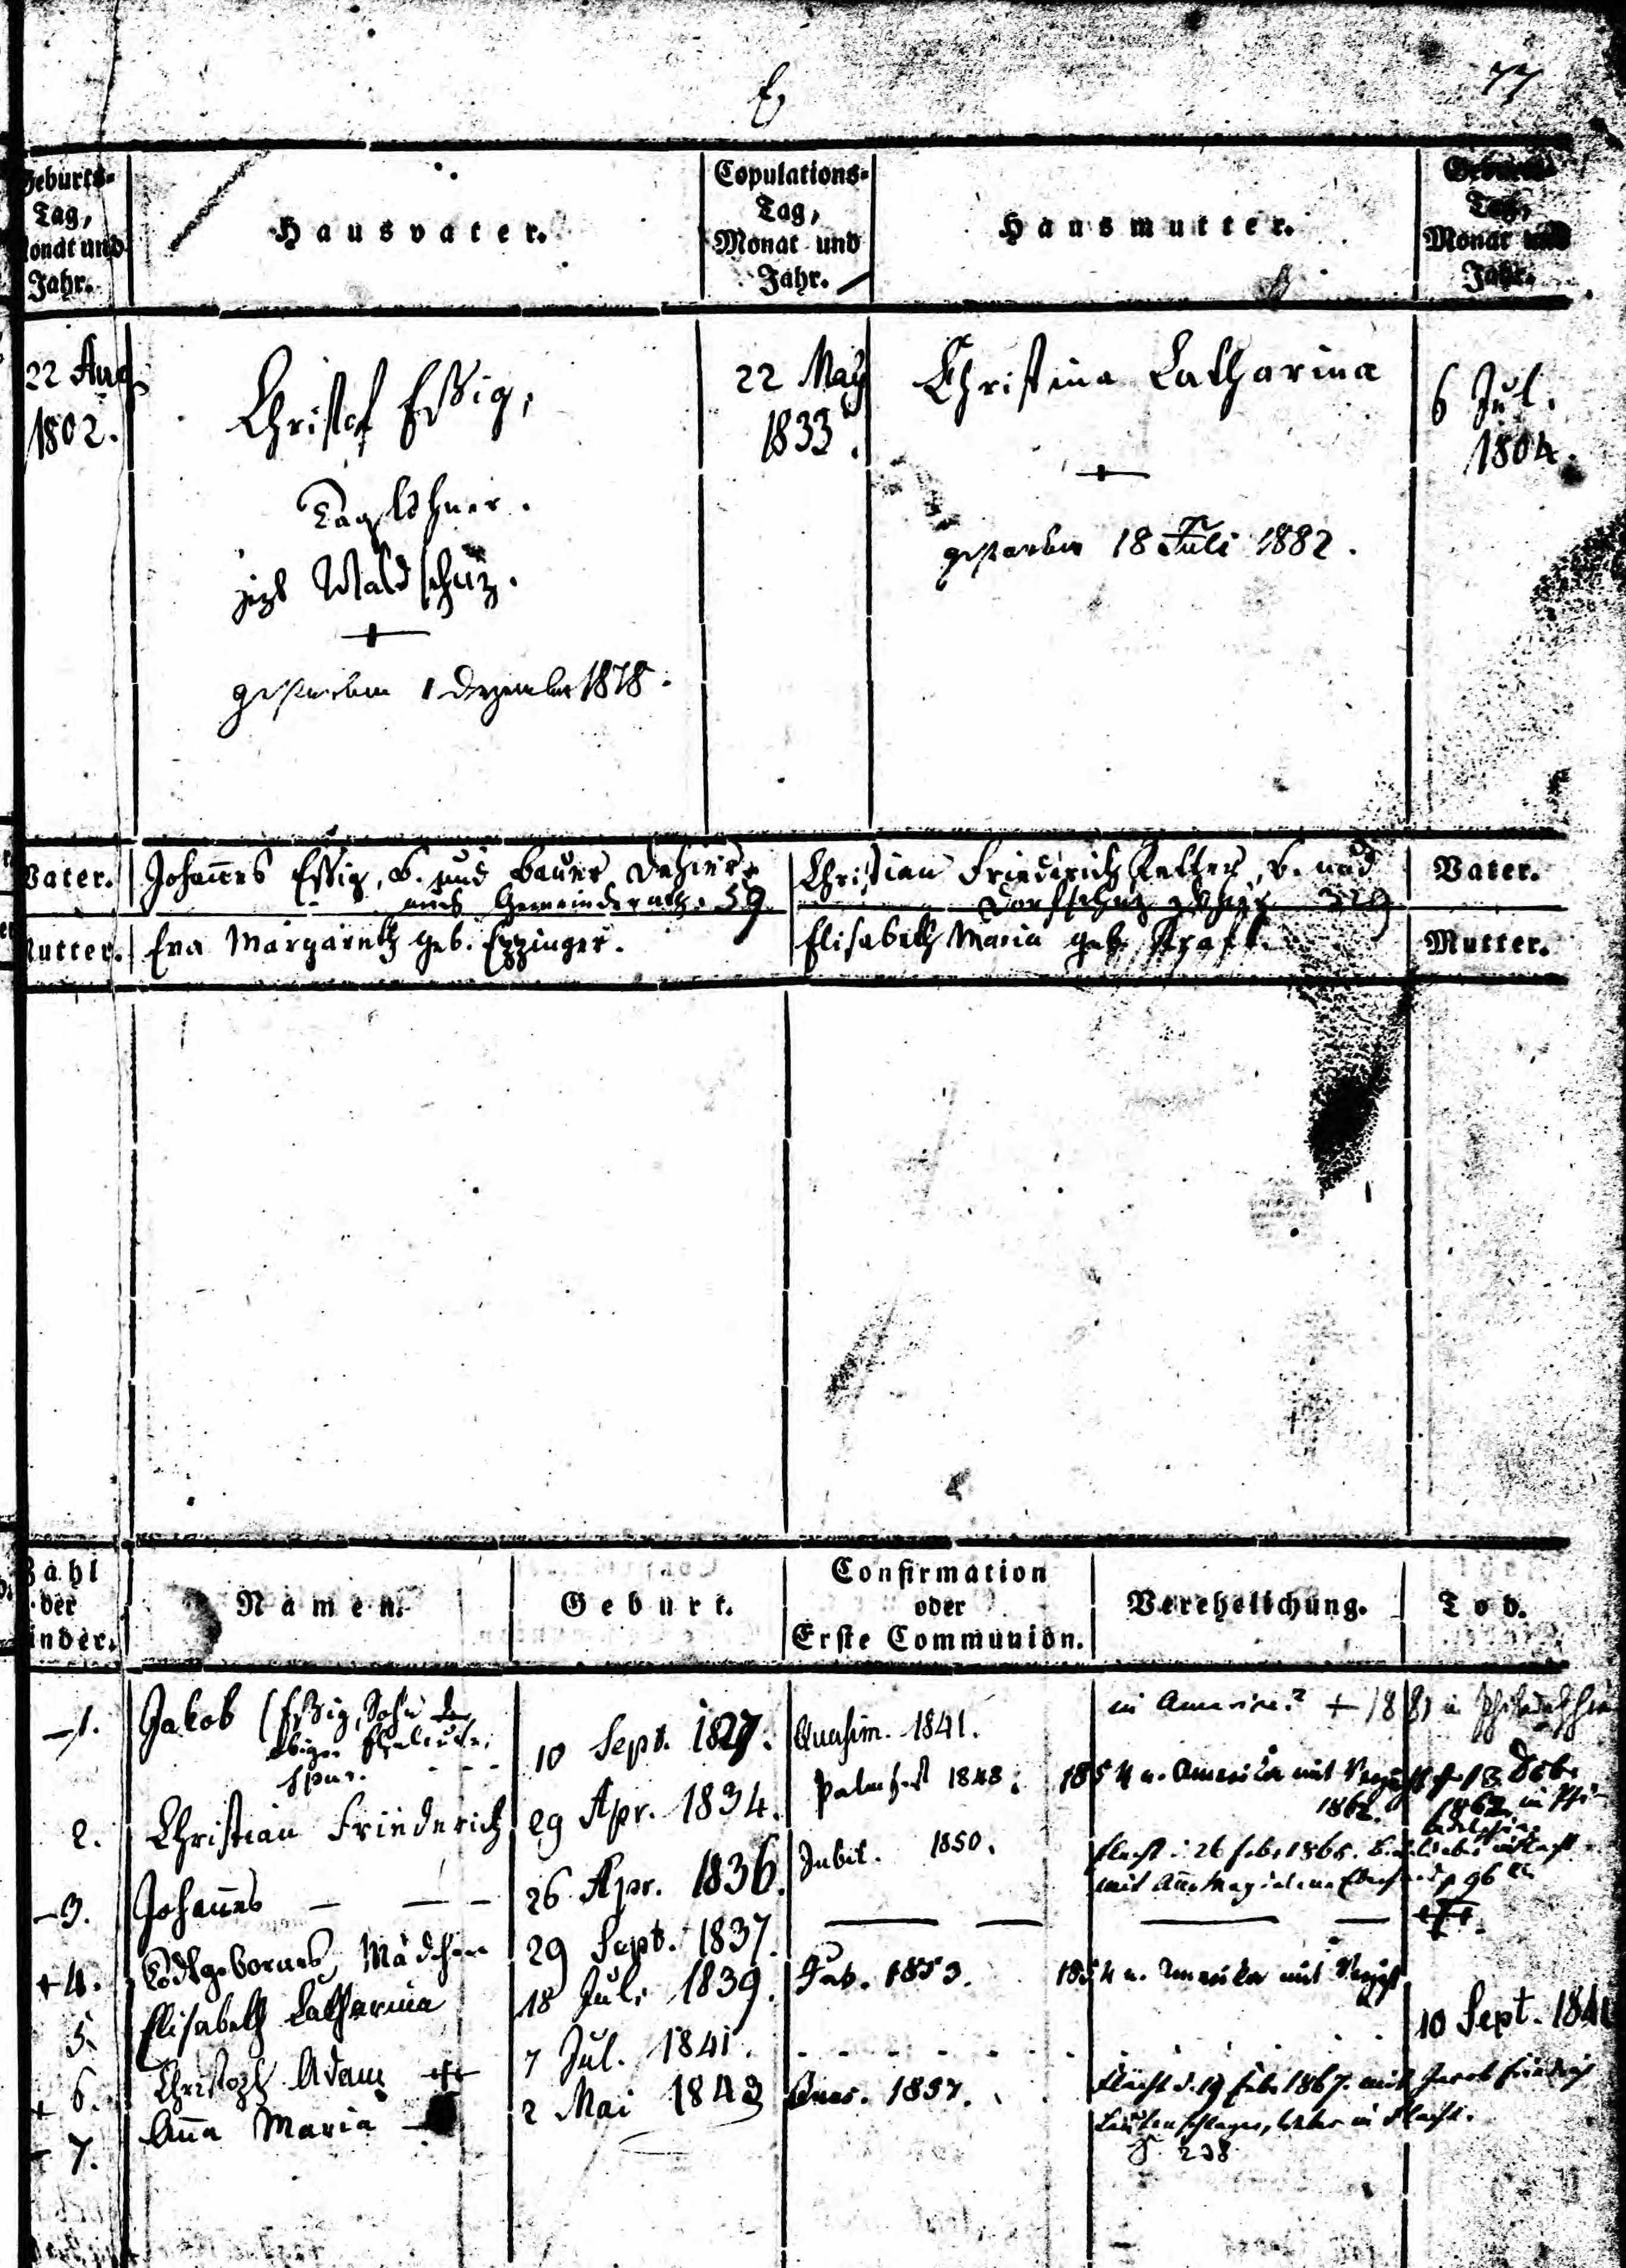 E
77
Geburts-
Tag,
Monat und
Jahr.
Hausvater.
Copulations-
Tag,
Monat und
Jahr.
Hausmutter.
Tag,
Monat und
Jahr.
22 Aug.
1802.
Christof Eßig,
Taglöhner.
jezt Waldschüz.
+
gestorben 1 Dezember 1878.
22 May
1833.
Christina Catharina
+
gestorben 18 Juli 1882.
6 Jul.
1804.
Vater.
Johañes Eßig, B. und Bauer dahier,
auch Gemeinderath. 59.
Christian Friederich Keller, B. und
Dorfschüz dahier
Vater.
Mutter.
Eva Margareth geb. Ezzinger.
Elisabeth Maria geb. Kraft.
Mutter.
Zahl
der
Kinder.
Namen.
Geburt.
Confirmation
oder
Erste Communion.
Verehelichung.
Tod.
1. Jakob (Eßig, Sohn der
obigen Eheleute,
spur.
10 Sept. 1827.
Quasim. 1841.
in Amerika? + 1881 in Philadelphia
2. Christian Friederich
29 Apr. 1834.
Palmfest 1848.
1854 n. Amerika mit Verzicht
1862.
3. Johañes
26 Apr. 1836.
Jubil. 1850.
Flacht: 26 Febr 1865.
mit Añe Magdalena p 96
4. Todtgebornes Mädchen
29 Sept. 1837.
5. Elisabeth Catharina
18 Juli 1839.
Jub. 1853.
1854 n. Amerika mit Verzicht
6. Christoph Adam
7 Jul. 1841.
10 Sept. 184
7. Aña Maria
2 Mai 1843
1857.
Flacht d. 19 Febr 1867. mit Jacob Friedrich
Lautenschlager, Weber in Flacht.
S. 238